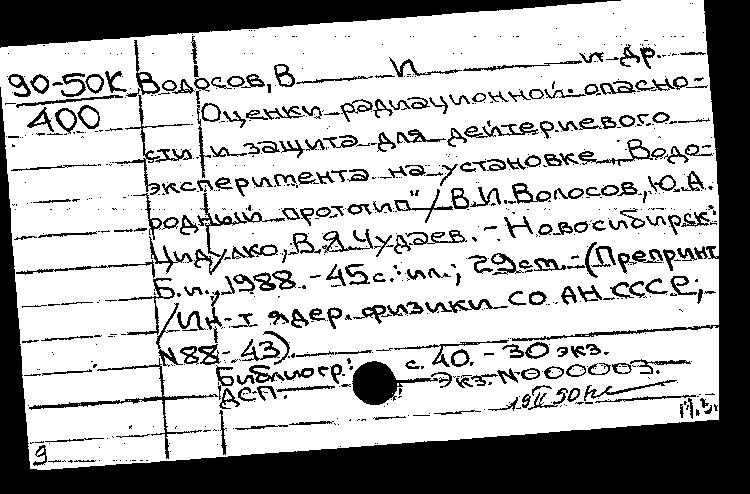 90-50К Волосов, В И и др.
400 Оценки радиационной опасно-
сти и защита для дейтериевого
эксперимента на установке „Водо-
родный прототип" / В.И. Волосов, Ю.А.
Цидулко, В.Я. Чудаев. - Новосибирск:
Б.и., 1988. - 45 с.: ил.; 29 см. - (Препринт
/ Ин-т ядер. физики СО АН СССР;
N 88-43).
Библиогр.: с. 40. - 30 экз.
ДСП. Экз. N000003.
9